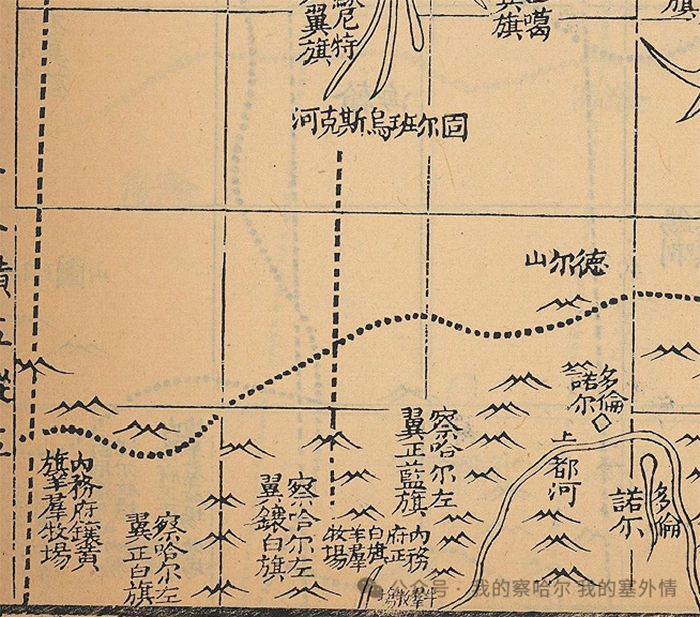 尼特
翼旗
噶
翼旗
旗
固尔班烏斯克河
德尔山
多倫
諾尔
上都河
多倫
諾尔
察哈尔左
翼正藍旗
內務
府正
白旗
羊羣
牧場
察哈尔左
翼鑲白旗
察哈尔左
翼正白旗
內務府鑲黃
旗羊羣牧場
公众号 · 我的察哈尔 我的塞外情